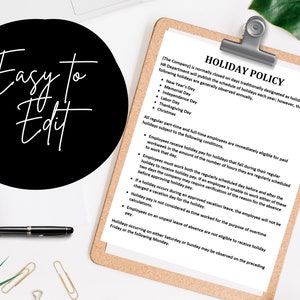 Easy to
Edit
HOLIDAY POLICY
[The Company] is normally closed on days traditionally designated as holidays.
HR Department will publish the schedule of holidays each year; however, the
following holidays are generally observed annually.
New Year's Day
Memorial Day
Independence Day
Labor Day
Thanksgiving Day
Christmas
All regular part-time and full-time employees are immediately eligible for paid
holidays subject to the following conditions.
Employees receive holiday pay for holidays that fall during their regular
workweek in the amount of the number of hours they are regularly scheduled
to work that day.
Employees must work both the regularly scheduled day before and after the
holiday to receive holiday pay. If an employee is absent on one or both of these
days the company may require verification of the reason for the absence
before approving holiday pay.
If a holiday occurs during an approved vacation leave, the employee will not be
charged a vacation day for the holiday.
Holiday pay is not computed as time worked for the purpose of overtime
calculations.
Employees on an unpaid leave of absence are not eligible to receive holiday
pay.
Holidays occurring on either Saturday or Sunday may be observed on the preceding
Friday or the following Monday.